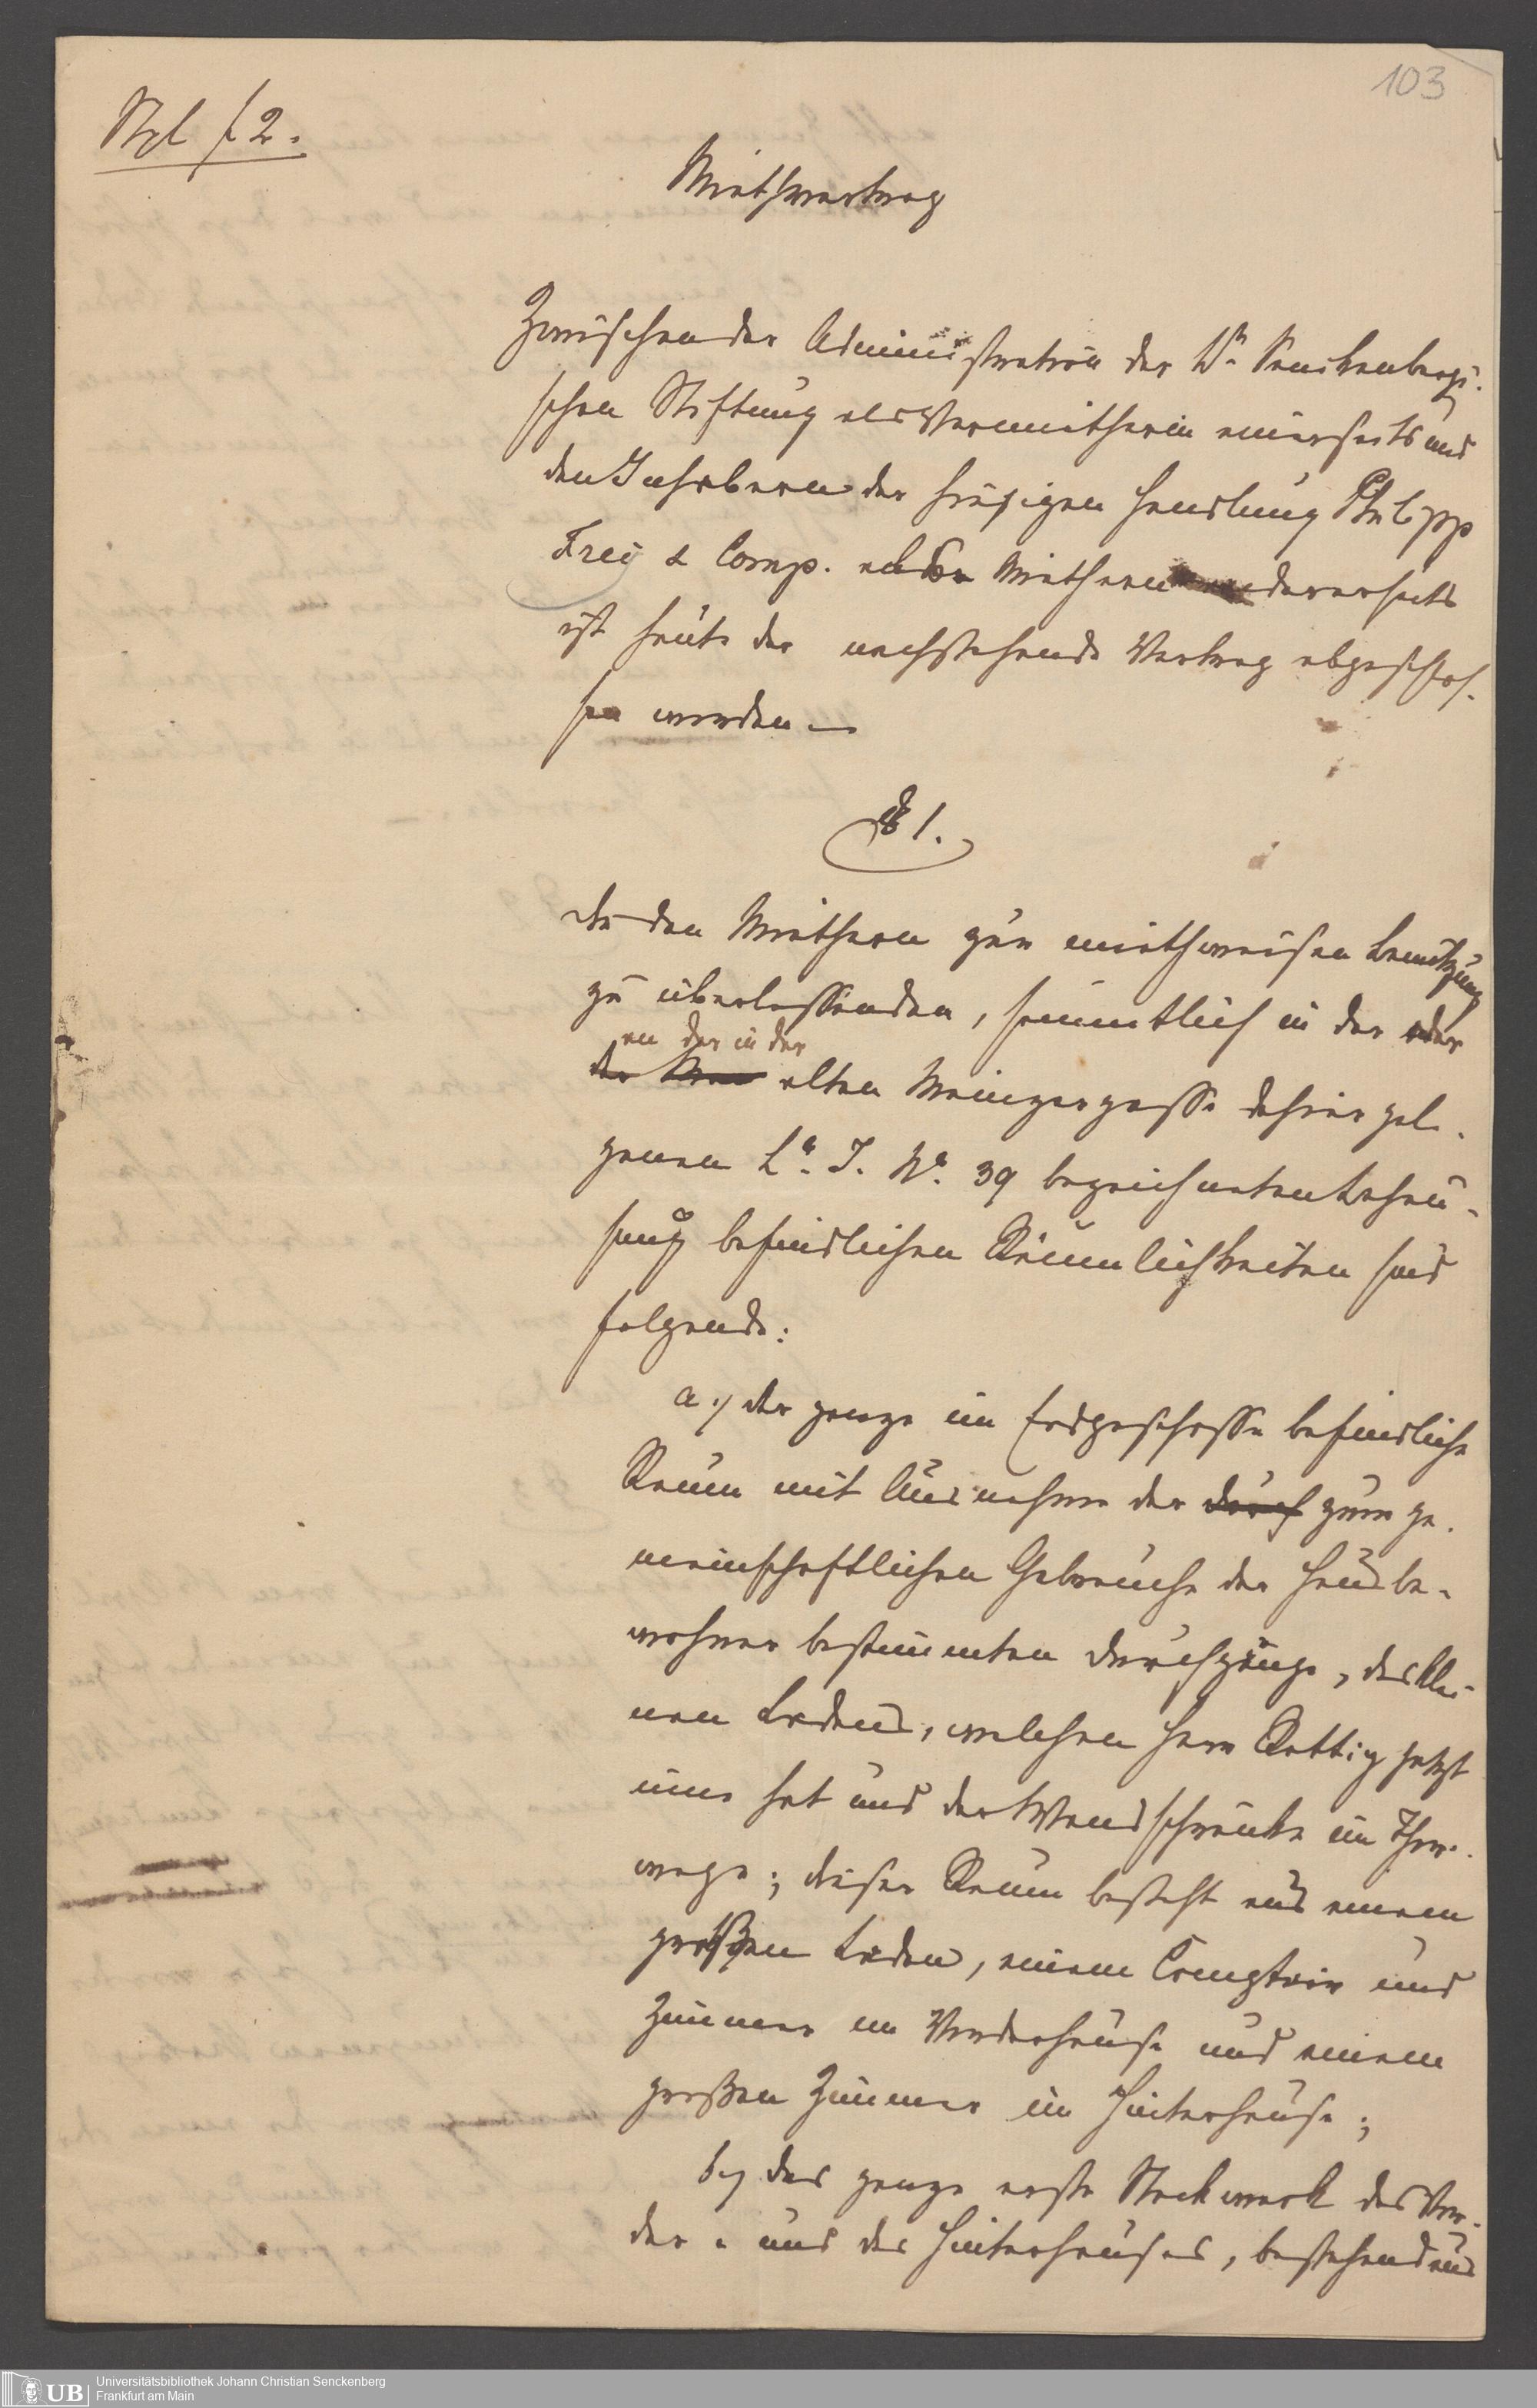 103
Stpl f 2.
Miethvertrag
Zwischen der Administration der Dr. Senckenbergi-
schen Stiftung als Vermietherin einerseits und
den Inhabern der hiesigen Handlung Philipp
Frey & Comp. als Miethern andererseits
ist heute der nachstehende Vertrag abgeschlos-
sen worden.—
§ 1.
Die den Miethern zur miethweisen Benutzung
zu überlassenden, sämmtlich in der oder
an der in der
der alten Mainzergasse dahier gele-
genen La. J. No. 39 bezeichneten Behau-
sung befindlichen Räumlichkeiten sind
folgende:
a.) der ganze im Erdgeschosse befindliche
Raum mit Ausnahme der durch zum ge-
meinschaftlichen Gebrauche der Hausbe-
wohner bestimmten Durchgänge, des klei-
nen Ladens, welchen Herr Rettig jetzt
inne hat und der Wandschränke im Thor-
wege; dieser Raum besteht aus einem
großen Laden, einem Comptoir und
Zimmer im Vorderhause und einem
großen Zimmer im Hinterhause;
b.) das ganze erste Stockwerk des Vor-
der- und des Hinterhauses, bestehend aus
UB
Universitätsbibliothek Johann Christian Senckenberg
Frankfurt am Main